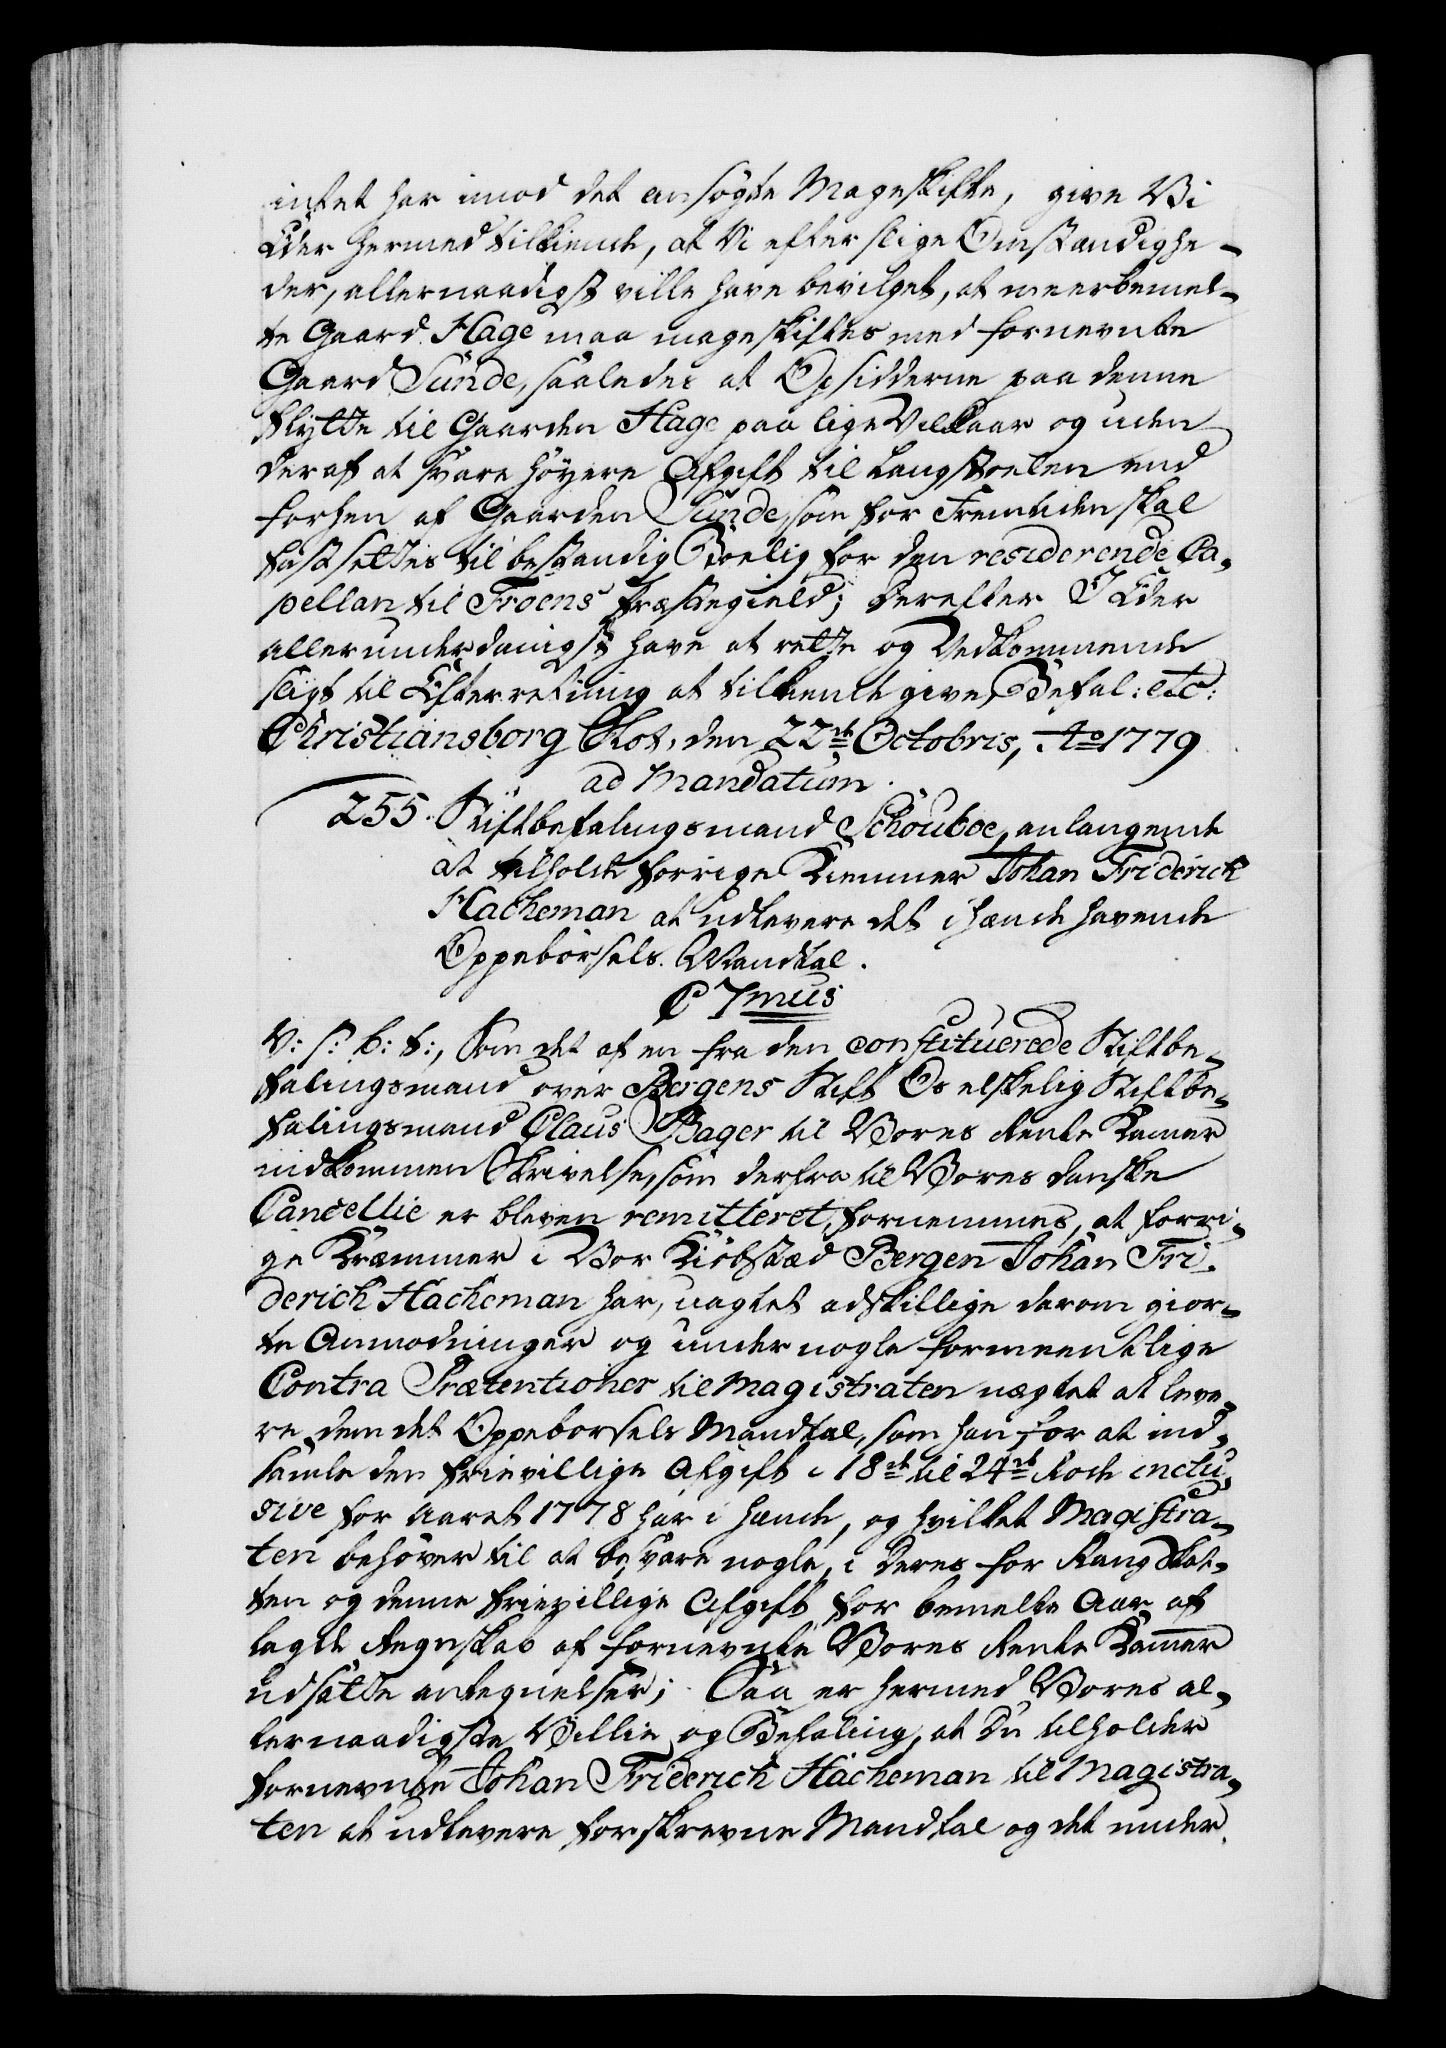 intet har imod det ansøgte Mageskifte, give Vi
Eder hermed tilkiende, at Vi efter slige Omstændighe-
der, allernaadigst ville have bevilget, at meerbemel-
te Gaard Hage maa mageskiftes med fornevnte
Gaard Sunde, saaledes at Opsidderne paa denne
flytte til Gaarden Hage paa lige Vilkaar og uden
deraf at svare høyere Afgift til Langstoelen end
forhen af Gaarden Sunde, som for Fremtiden skal
fastsettes til bestandig Boelig for den residerende Ca-
pellan til Froens Præstegield; Derefter I Eder
allerunderdanigst have at rette og Vedkommende
sligt til Efterretning at tilkiende give, Befal: etc:
Christiansborg Slot, den 22de Octobris, Ao 1779
ad Mandatum.
255. Stiftbefalingsmand Schouboe, anlangende
at tilholde forrige Kræmmer Johan Friderich
Hacheman at udlevere det i hænde havende
Oppebørsels Mandtal.
C 7mus
V: S: b: t:, Som det af en fra den constituerede Stiftbe-
falingsmand over Bergens Stift Os elskelig Stiftbe-
falingsmand Claus Bager til Vores Rente Kamer
indkommen Skrivelse, som derfra til Vores danske
Cancellie er bleven remitteret, fornemmes, at forri-
ge Kræmmer i Vor Kiøbstæd Bergen Johan Fri-
derich Hacheman har, uagtet adskillige derom gior-
te Anmodninger og under nogle formeentlige
Contra Prætentioner til Magistraten nægtet at leve-
re dem det Oppebørsels Mandtal, som han for at ind-
samle den frievillige Afgift i 18de til 24de Rode inclu-
sive for Aaret 1778 har i hænde, og hvilket Magistra-
ten behøver til at besvare nogle, i Deres for Rang Skat-
ten og denne frievillige Afgift for bemelte Aar af
lagde Regnskab af fornevnte Vores Rente Kamer
udsatte antegnelser; Saa er hermed Vores al-
lernaadigste Villie og Befaling, at Du tilholder
fornevnte Johan Friderich Hacheman til Magistra-
ten at udlevere forskrevne Mandtal og det under